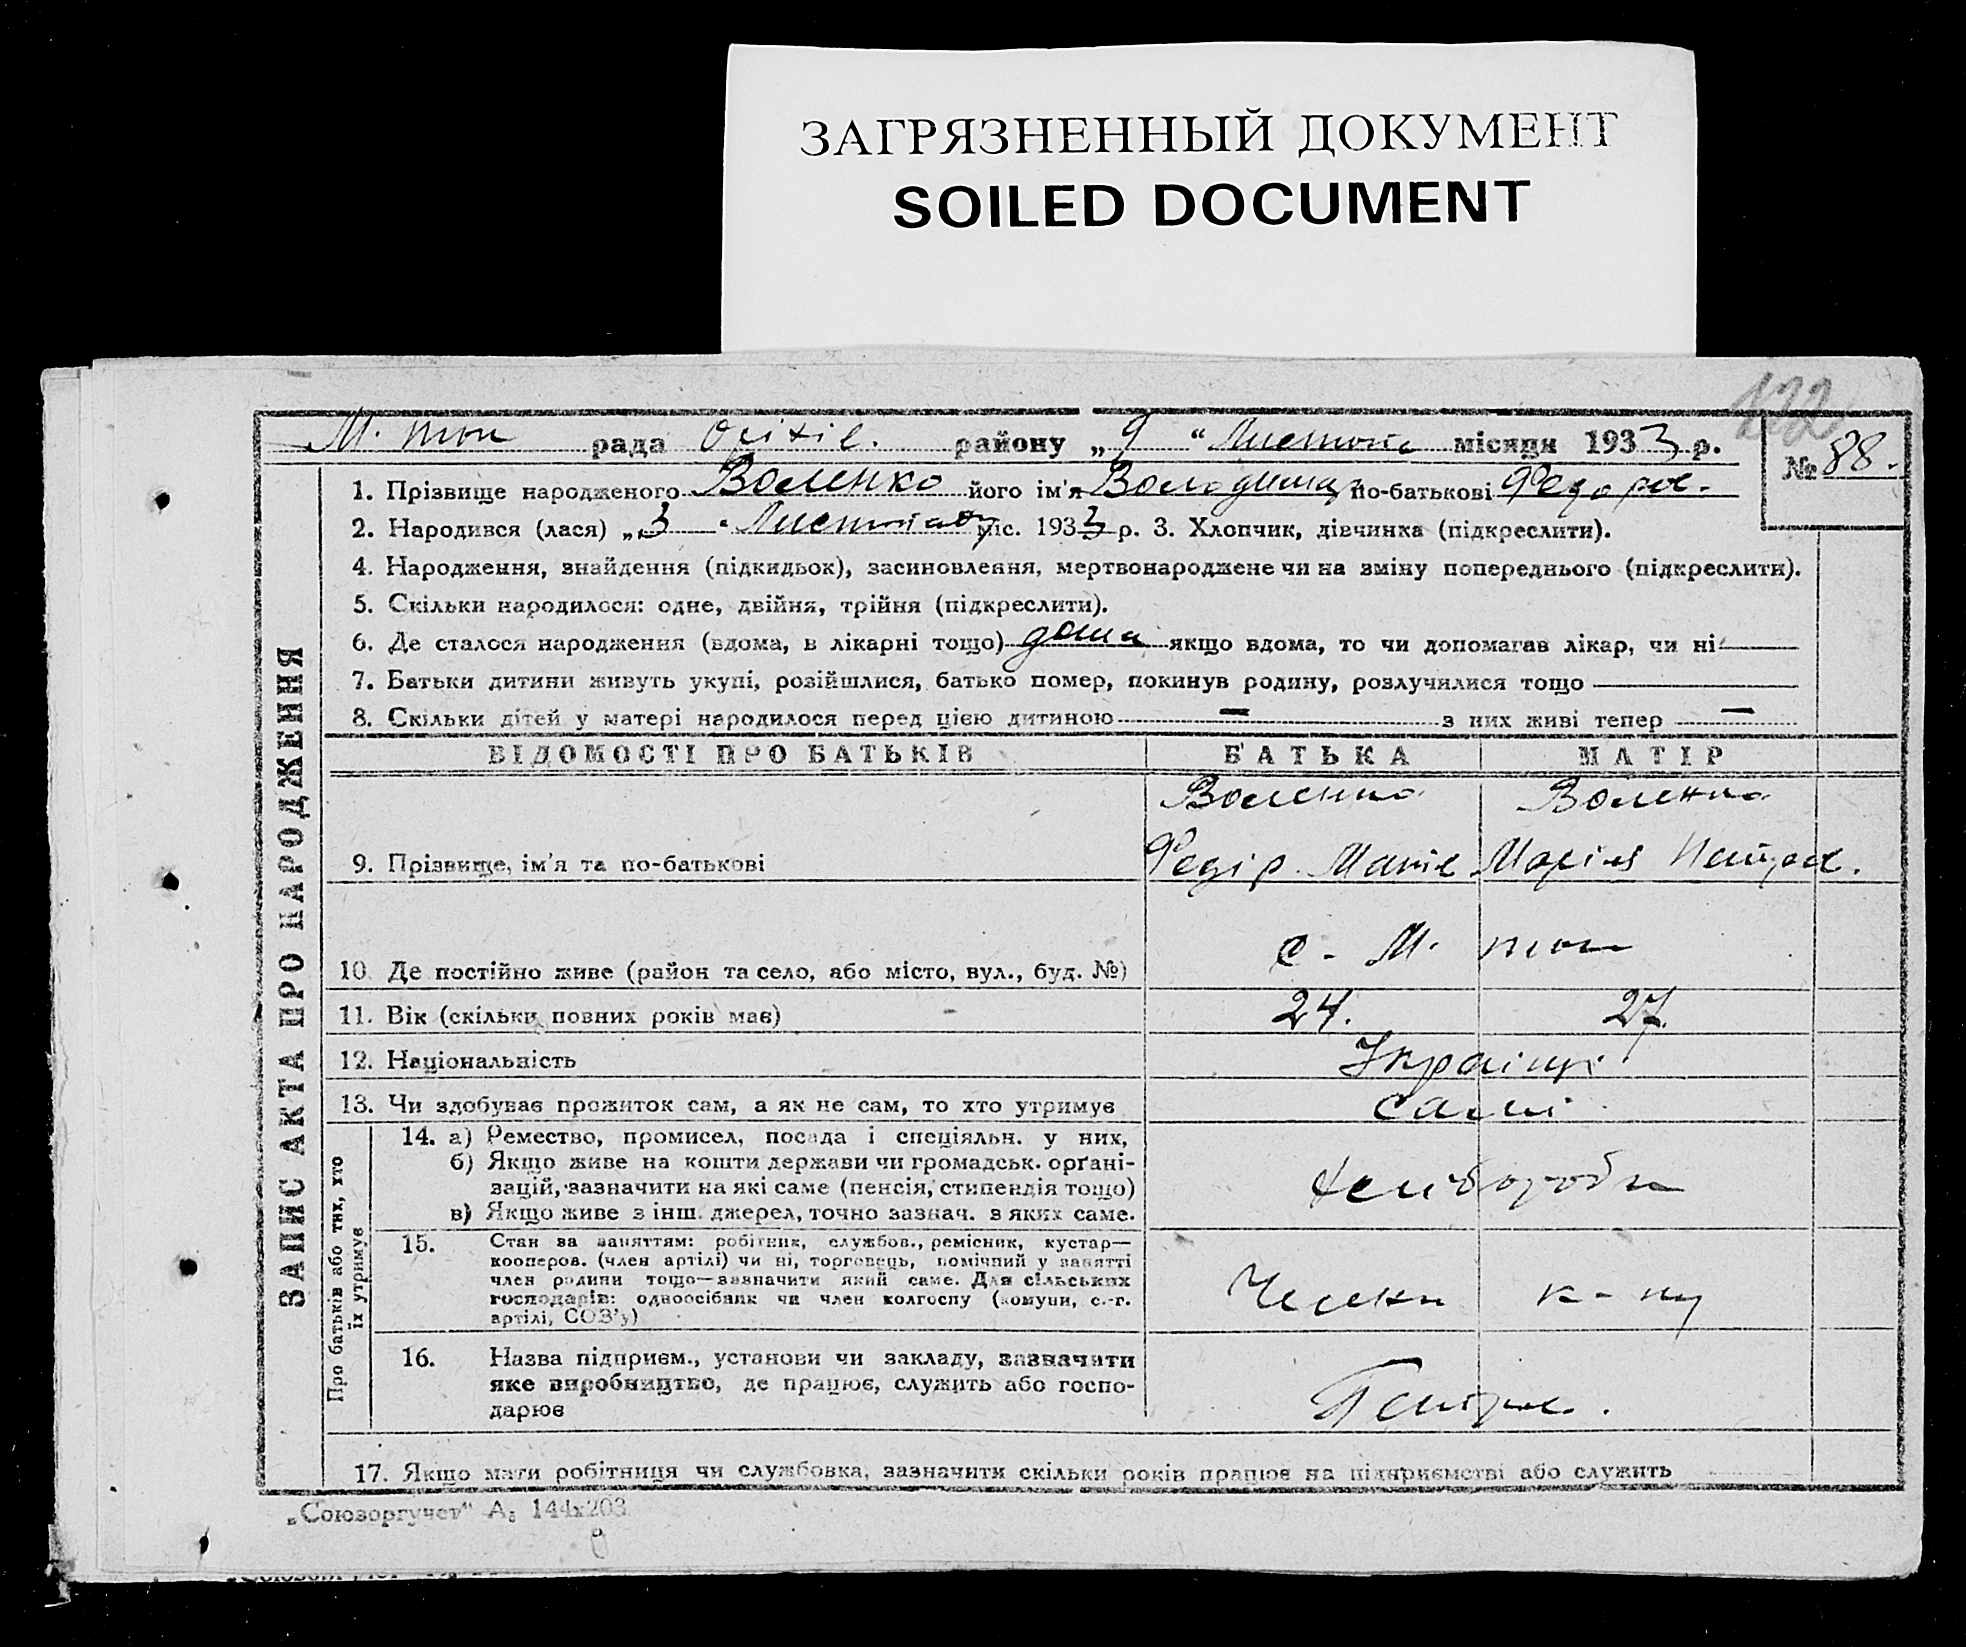 ЗАГРЯЗНЕННЫЙ ДОКУМЕНТ
SOILED DOCUMENT
122
М. ток рада Оріхів. району „9“ Листопа місяця 1933 р.
№ 88.
1. Прізвище народженого Воленко його ім'я Володимир по-батькові Федоров.
2. Народився (лася) „3“ Листопаду міс. 1933 р. 3. Хлопчик, дівчинка (підкреслити).
4. Народження, знайдення (підкидьок), засиновлення, мертвонароджене чи на зміну попереднього (підкреслити).
5. Скільки народилося: одне, двійня, трійня (підкреслити).
6. Де сталося народження (вдома, в лікарні тощо) дома якщо вдома, то чи допомагав лікар, чи ні
7. Батьки дитини живуть укупі, розійшлися, батько помер, покинув родину, розлучилися тощо
8. Скільки дітей у матері народилося перед цією дитиною — з них живі тепер —
ЗАПИС АКТА ПРО НАРОДЖЕННЯ
ВІДОМОСТІ ПРО БАТЬКІВ БАТЬКА МАТІР
Воленко Воленко
9. Прізвище, ім'я та по-батькові Федір Матв Марія Петров.
10. Де постійно живе (район та село, або місто, вул., буд. №) с - М. ток
11. Вік (скільки повних років має) 24. 27.
12. Національність Українці
13. Чи здобуває прожиток сам, а як не сам, то хто утримує самі
Про батьків або тих, хто їх утримує
14. а) Ремество, промисел, посада і спеціяльн. у них,
б) Якщо живе на кошти держави чи громадськ. орґані-
зацій, зазначити на які саме (пенсія, стипендія тощо) хлибороби
в) Якщо живе з інш. джерел, точно зазнач. з яких саме.
15. Стан за заняттям: робітник, службов., ремісник, кустар—
кооперов. (член артілі) чи ні, торговець, помічний у занятті
член родини тощо—зазначити який саме. Для сільських
господарів: одноосібник чи член колгоспу (комуни, с.-г.
артілі, СОЗ'у) Члени к-пу
16. Назва підприєм., установи чи закладу, зазначити
яке виробництво, де працює, служить або госпо-
дарює
17. Якщо мати робітниця чи службовка, зазначити скільки років працює на підприємстві або служить
„Союзоргучет“ А₅ 144х203